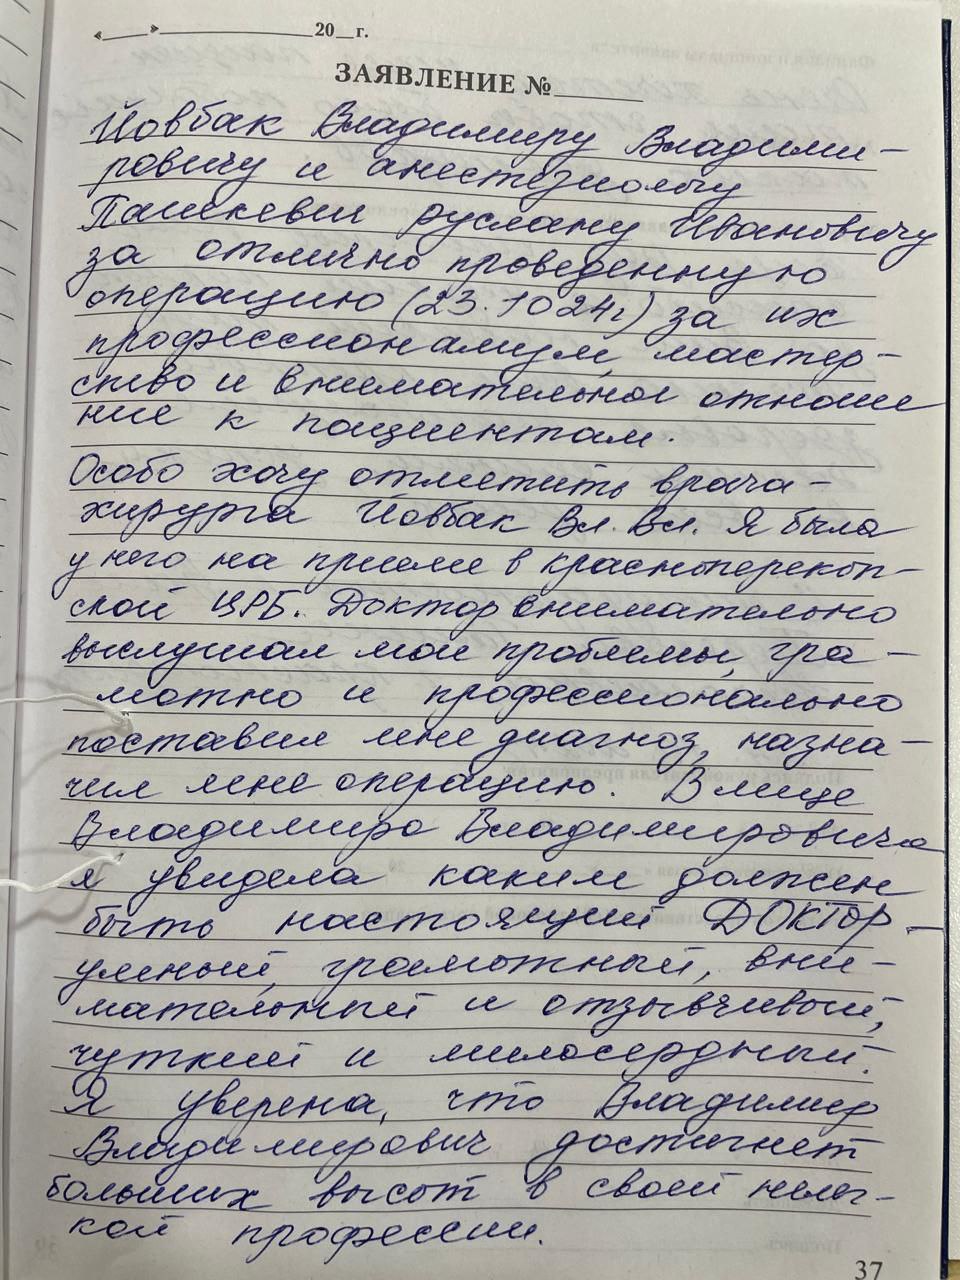 « » 20 г.
ЗАЯВЛЕНИЕ №
Йовбак Владимиру Владими-
ровичу и анестезиологу
Пашкевич Руслану Ивановичу
за отлично проведенную
операцию (23.1024г) за их
профессионализм, мастер-
ство и внимательное отноше
ние к пациентам.
Особо хочу отметить врача-
хирурга Йовбак Вл. Вл. Я была
у него на приеме в красноперекоп-
ской ЦРБ. Доктор внимательно
выслушал мои проблемы, гра-
мотно и профессионально
поставил мне диагноз, назна-
чил мне операцию. В лице
Владимира Владимировича
я увидела каким должен
быть настоящий ДОКТОР-
умный, грамотный, вни-
мательный и отзывчивый,
чуткий и милосердный.
Я уверена, что Владимир
Владимирович достигнет
больших высот в своей нелег-
кой профессии.
37